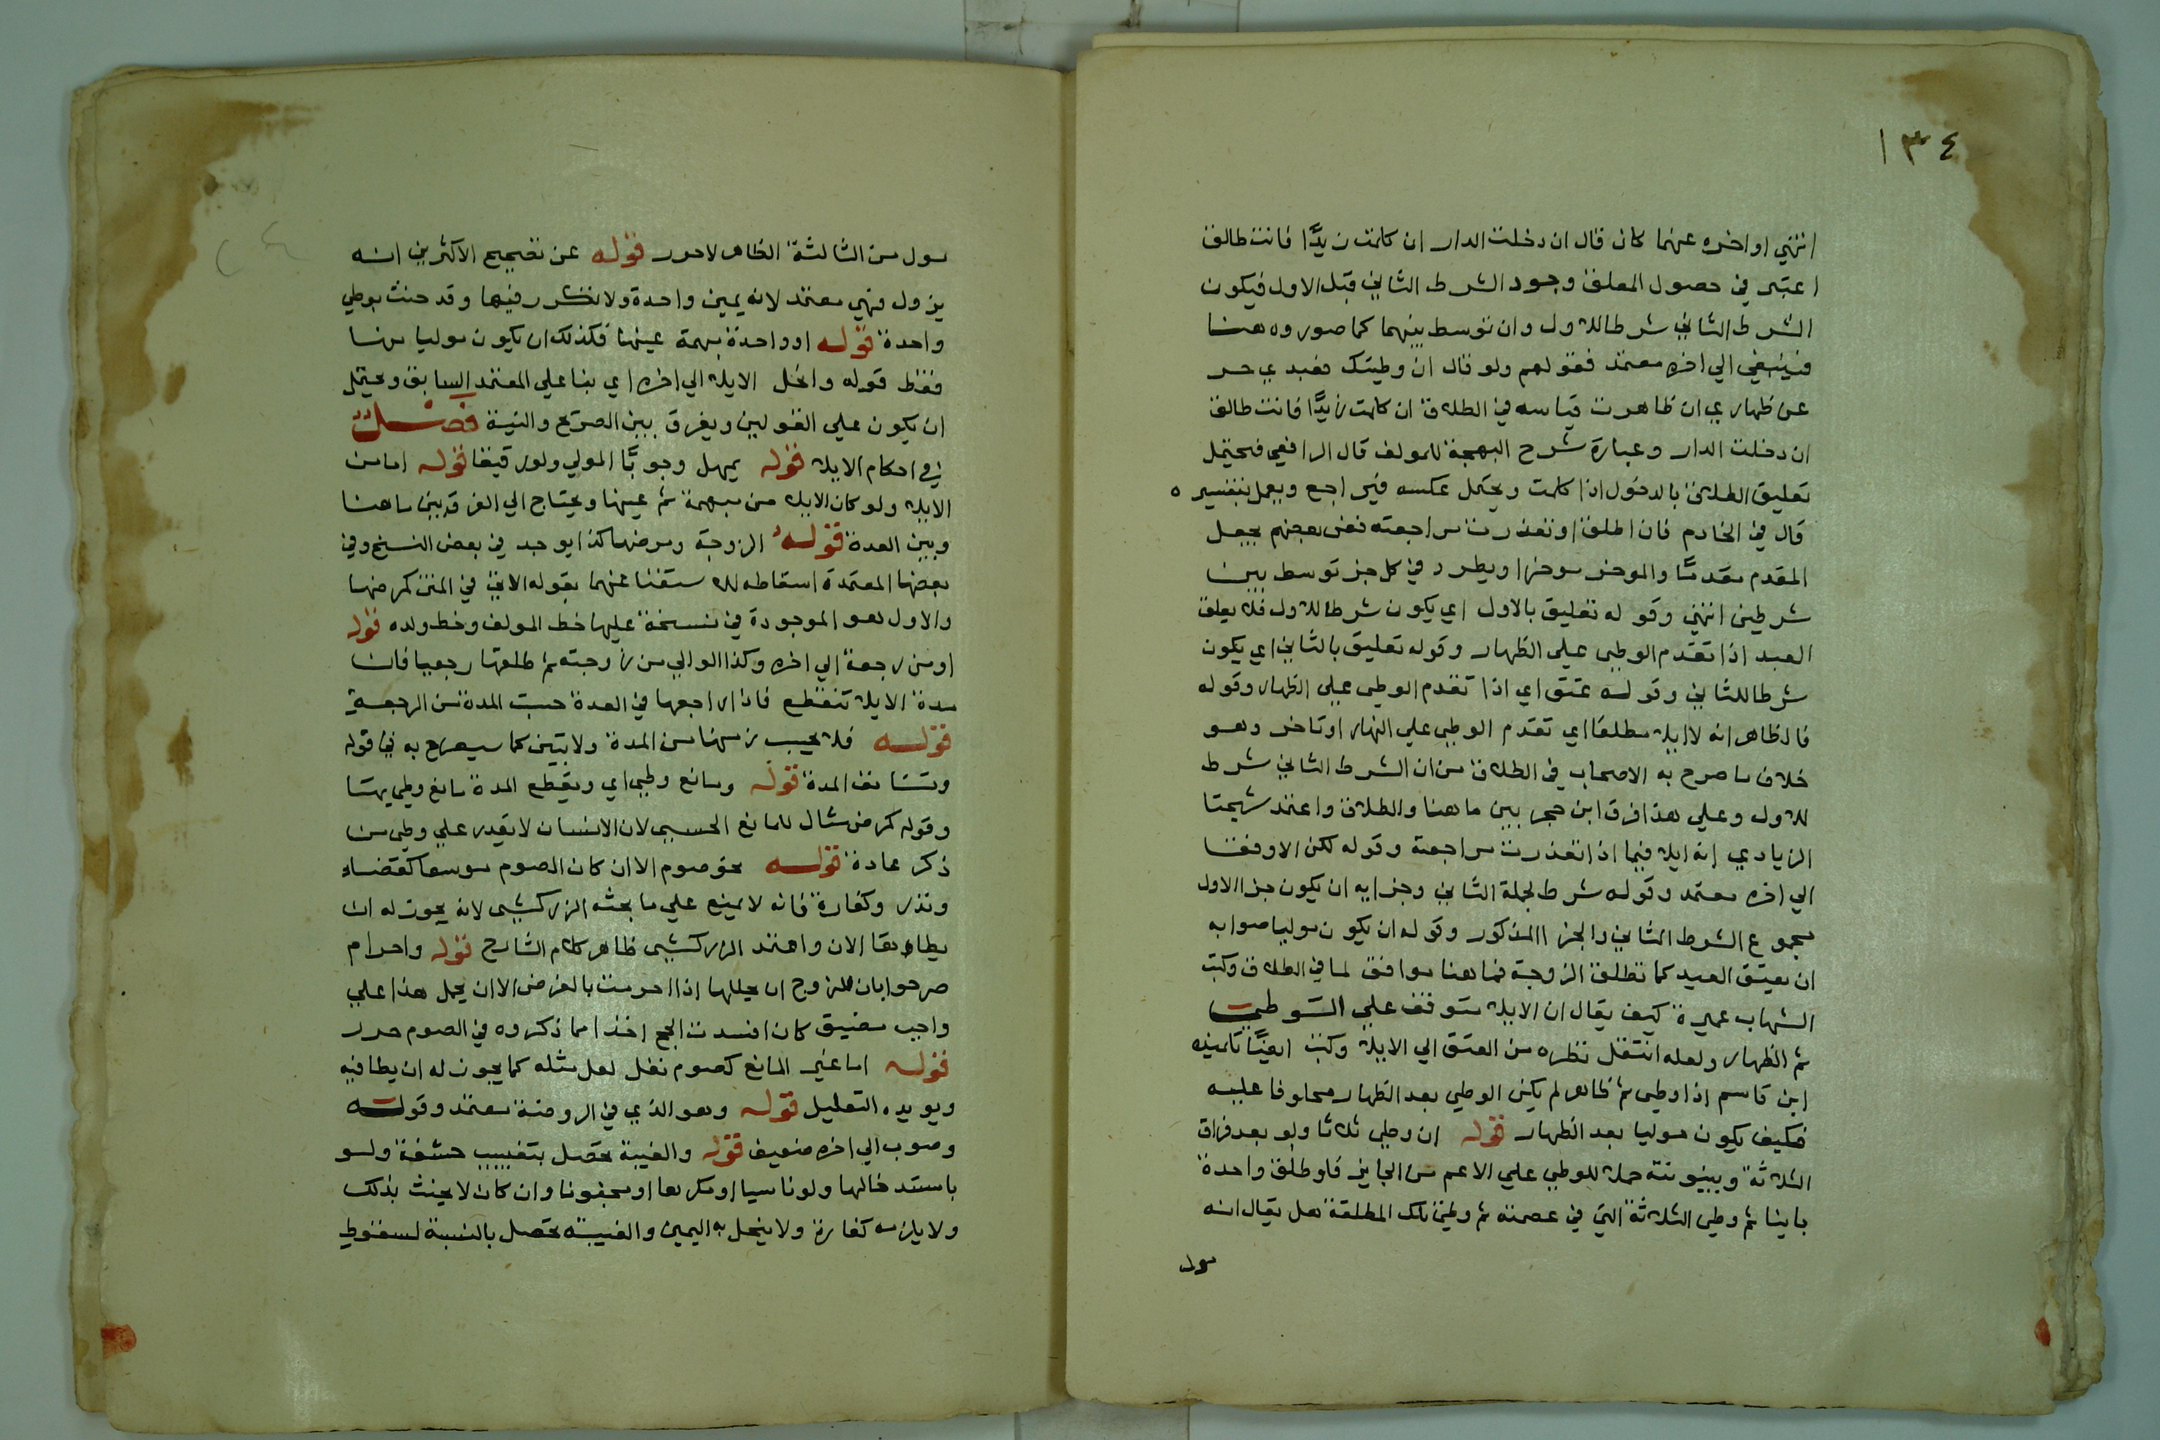 ١٣٤
انتهي او اخره عنهما كان قال ان دخلت الدار ان كلمت زيدًا فانت طالق
اعتبر في حصول المعلق وجود الشرط الثاني قبل الاول فيكون
الشرط الثاني شرطا للاول وان توسط بينهما كما صوروه هنا
فينبغي الي اخره معتمد فقولهم ولو قال ان وطيتك فعبدي حر
عن ظهاري ان ظاهرت قياسه في الطلاق ان كلمت زيدًا فانت طالق
ان دخلت الدار وعبارة شرح البهجة للمولف قال الرافعي فيحتمل
تعليق الطلاق بالدخول اذا كلمت ويحتمل عكسه فيراجع ويعمل بتفسيره
قال في الخادم فان اطلق او تعذرت مراجعته فعن بعضهم يجعل
المقدم مقدمًا والموخر موخرا ويطرد في كل جز توسط بين
شرطين انتهي وقوله تعليق بالاول اي يكون شرطا للاول فلا يعلق
العبد اذا تقدم الوطي علي الظهار وقوله تعليق بالثاني اي يكون
شرطا للثاني وقوله عتق اي اذا تقدم الوطي علي الظهار وقوله
فالظاهر انه لا ايلا مطلقا اي تقدم الوطي علي النهار او تاخر وهو
خلاف ما صرح به الاصحاب في الطلاق من ان الشرط الثاني شرط
للاول وعلي هذا فرق ابن حجر بين ما هنا والطلاق واعتمد شيخنا
الزيادي انه ايلا فيما اذا تعذرت مراجعته وقوله لكن الاوفق
الي اخره معتمد وقوله شرط لجملة الثاني وجزايه ان يكون جزا الاول
مجموع الشرط الثاني والجزا المذكور وقوله ان يكون موليا صوابه
ان يعتق العبد كما تطلق الزوجة فما هنا موافق لما في الطلاق وكتب
الشهاب عميرة كيف يقال ان الايلا متوقف علي الوطي
ثم الظهار ولعله انتقل نظره من العتق الي الايلا وكتب ايضًا تلميذه
ابن قاسم اذا وطي ثم ظاهر لم يكن الوطي بعد الظهار محلوفا عليه
فكيف يكون موليا بعد الظهار قوله ان وطي ثلاثا ولو بعد فراق
الثلاثة وبينونته حملا للوطي علي الاعم من الجايز فلو طلق واحدة
باينا ثم وطي الثلاثة التي في عصمته ثم وطي تلك المطلقة هل يقال انه
مول
مول من الثالثة الظاهر لا حرر قوله عن تصحيح الاكثرين انه
يزول فهي معتمد لانه يمين واحدة ولا تكرر فيها وقد حنث بوطي
واحدة قوله او واحدة مبهمة عينها فكذلك ان يكون موليا منها
فقط قوله وانحل الايلا الي اخره اي بنا علي المعتمد السابق ويحتمل
ان يكون علي القولين ويفرق بين الصريح والنية فصل
في احكام الايلا قوله يمهل وجوبًا المولي ولو رقيقا قوله اما من
الايلا ولو كان الايلا من مبهمة ثم عينها ويحتاج الي الفرق بين ما هنا
وبين العدة قوله الزوجة ومرضها كذا يوجد في بعض النسخ وفي
بعضها المعتمدة اسقاطه للاستغنا عنهما بقوله الاتي في المتن كمرضها
والاول هو الموجودة في نسخة عليها خط المولف وخط ولده قوله
او من رجعة الي اخره وكذا لو الي من زوجته ثم طلقها رجعيا فان
مدة الايلا تنقطع فاذا راجعها في العدة حسبت المدة من الرجعة
قوله فلا يحسب زمنها من المدة ولا يبتني كما سيصرح به في قوله
وتستانف المدة قوله ومانع وطي اي ويقطع المدة مانع وطي بها
وقوله كمرض مثال للمانع الحسي لان الانسان لا يقدر علي وطي من
ذكر عادة قوله نحو صوم الا ان كان الصوم موسعا كقضاء
ونذر وكفارة فانه لا يمنع علي ما بحثه الزركشي لانه يجوز له ان
يطاها الان واعتمد الزركشي ظاهر كلام الشارح قوله واحرام
صرحوا بان للزوج ان يحللها اذا احرمت بالفرض الا ان يحمل هذا علي
واجب مضيق كان افسدت الحج اخذا مما ذكروه في الصوم حرر
قوله اما غير المانع كصوم نفل لعل مثله كما يجوز له ان يطا فيه
ويويده التعليل قوله وهو الذي في الروضة معتمد وقوله
وصوب الي اخره ضعيف قوله والفيئة تحصل بتغييب حشفة ولو
باستدخالها ولو ناسيا او مكرها او مجنونا وان كان لا يحنث بذلك
ولا يلزمه كفارة ولا ينحل به اليمين والفيئة تحصل بالنسبة لسقوط